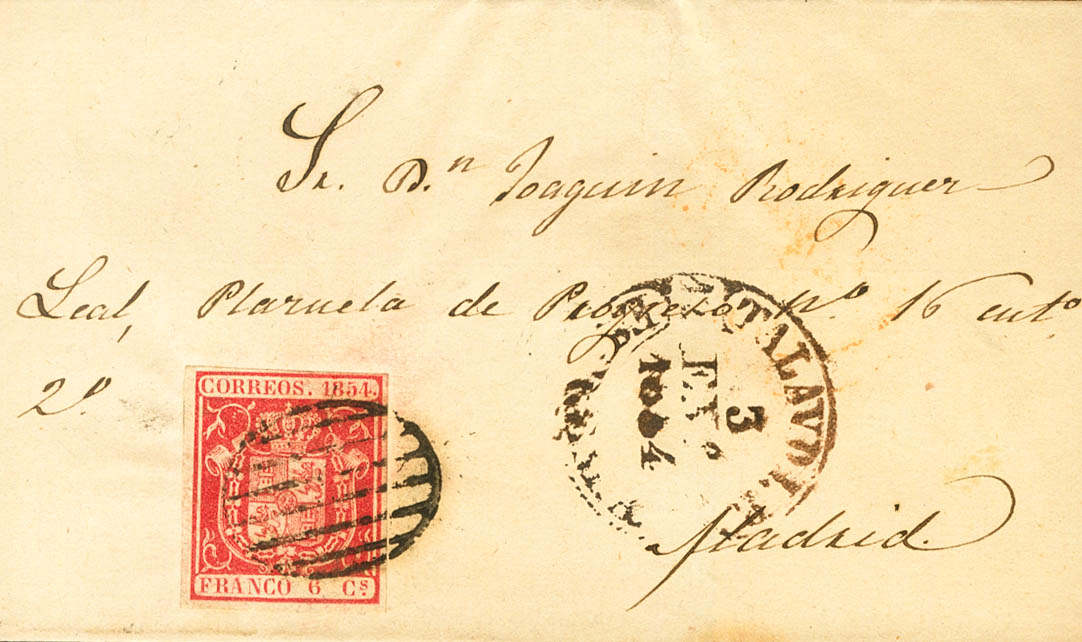 Sr. Dn Joaquin Rodriguez
Leal, Plazuela de Progreso No. 16 cuto
2o.
CORREOS. 1854.
FRANCO 6 Cs.
TALAV
3
EO
1854
Madrid.